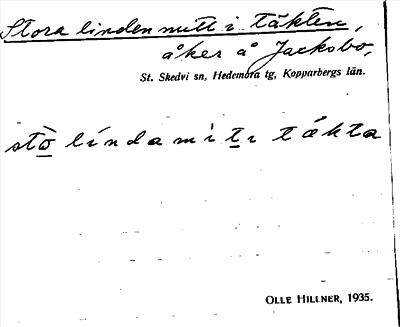 Stora linden mitt i täkten,
åker å Jacksbo,
St. Skedvi sn, Hedemora tg, Kopparbergs län.
stò líndamìtı tákta
OLLE HILLNER, 1935.